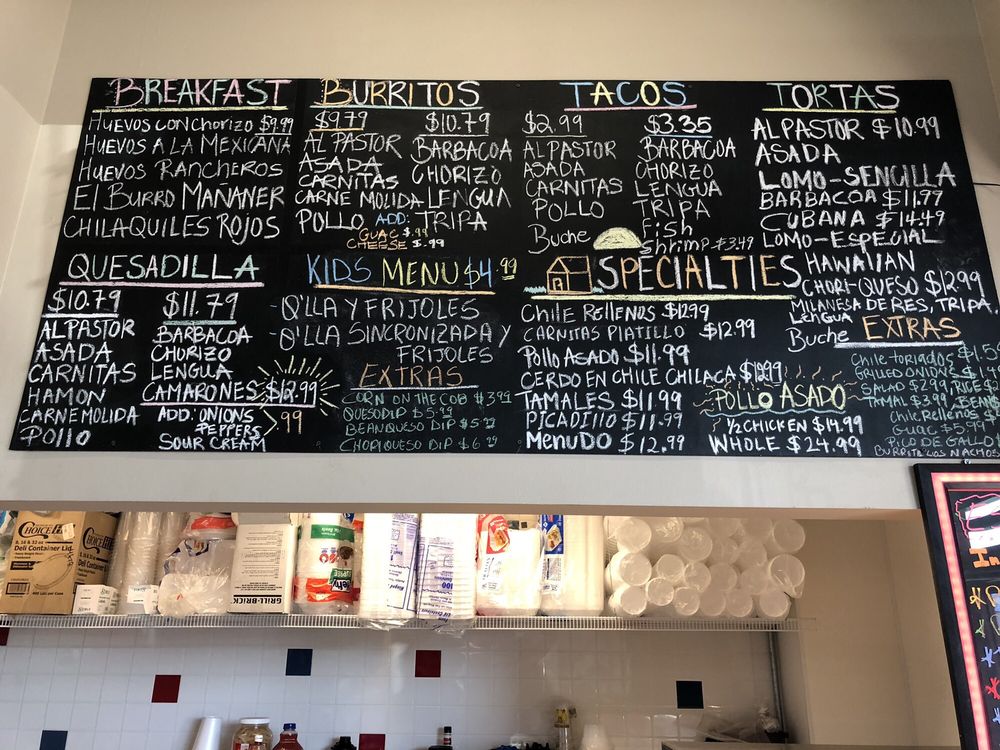 BREAKFAST
HUEVOS CON CHORIZO $9.99
HUEVOS A LA MEXICANA
HUEVOS RANCHEROS
EL BURRO MAÑANER
CHILAQUILES ROJOS
BURRITOS
$9.79
AL PASTOR
ASADA
CARNITAS
CARNE MOLIDA
POLLO
$10.79
BARBACOA
CHORIZO
LENGUA
TRIPA
ADD:
GUAC $.99
CHEESE $.99
TACOS
$2.99
AL PASTOR
ASADA
CARNITAS
POLLO
Buche
$3.35
BARBACOA
CHORIZO
LENGUA
TRIPA
fish
shrimp $3.49
TORTAS
AL PASTOR $10.99
ASADA
LOMO-SENCILLA
BARBACOA $11.77
CUBANA $14.49
LOMO-ESPECIAL
HAWAIIAN
CHORI-QUESO $12.99
MILANESA DE RES, TRIPA,
LENGUA
Buche
QUESADILLA
$10.79
AL PASTOR
ASADA
CARNITAS
HAMON
CARNE MOLIDA
POLLO
$11.79
BARBACOA
CHORIZO
LENGUA
CAMARONES $12.99
ADD: ONIONS
PEPPERS
SOUR CREAM
.99
KIDS MENU $4.99
- Q'LLA Y FRIJOLES
- Q'LLA SINCRONIZADA Y
FRIJOLES
EXTRAS
CORN ON THE COB $3.99
QUESO DIP $5.99
BEAN QUESO DIP $5.99
CHORIQUESO DIP $6.99
SPECIALTIES
Chile Rellenos $12.99
CARNITAS PLATILLO $12.99
Pollo ASADO $11.99
CERDO EN CHILE CHILACA $12.99
TAMALES $11.99
PICADILLO $11.99
MENUDO $12.99
POLLO ASADO
½ CHICKEN $14.99
WHOLE $24.99
EXTRAS
Chile toriados $1.5
GRILLED ONION
SALAD $2.99, RICE
TAMAL $3.99, BEAN
Chile Rellenos
GUAC $5.99
PICO DE GALLO
BURRITO LOS NACHOS
CHOICE
8, 16 & 32 oz
Deli Container Lid
CHOICE
Deli Container Lid
GRILL-BRICK
100